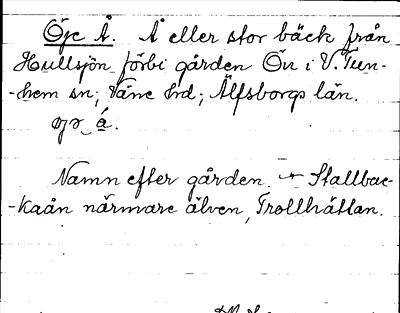 Öje Å. Å eller stor bäck från
Hullsjön förbi gården Ön i V. Tun-
-hem sn; Väne hd; Älfsborgs län.
á.
Namn efter gården. Stallbac-
-kaån närmare älven, Trollhättan.